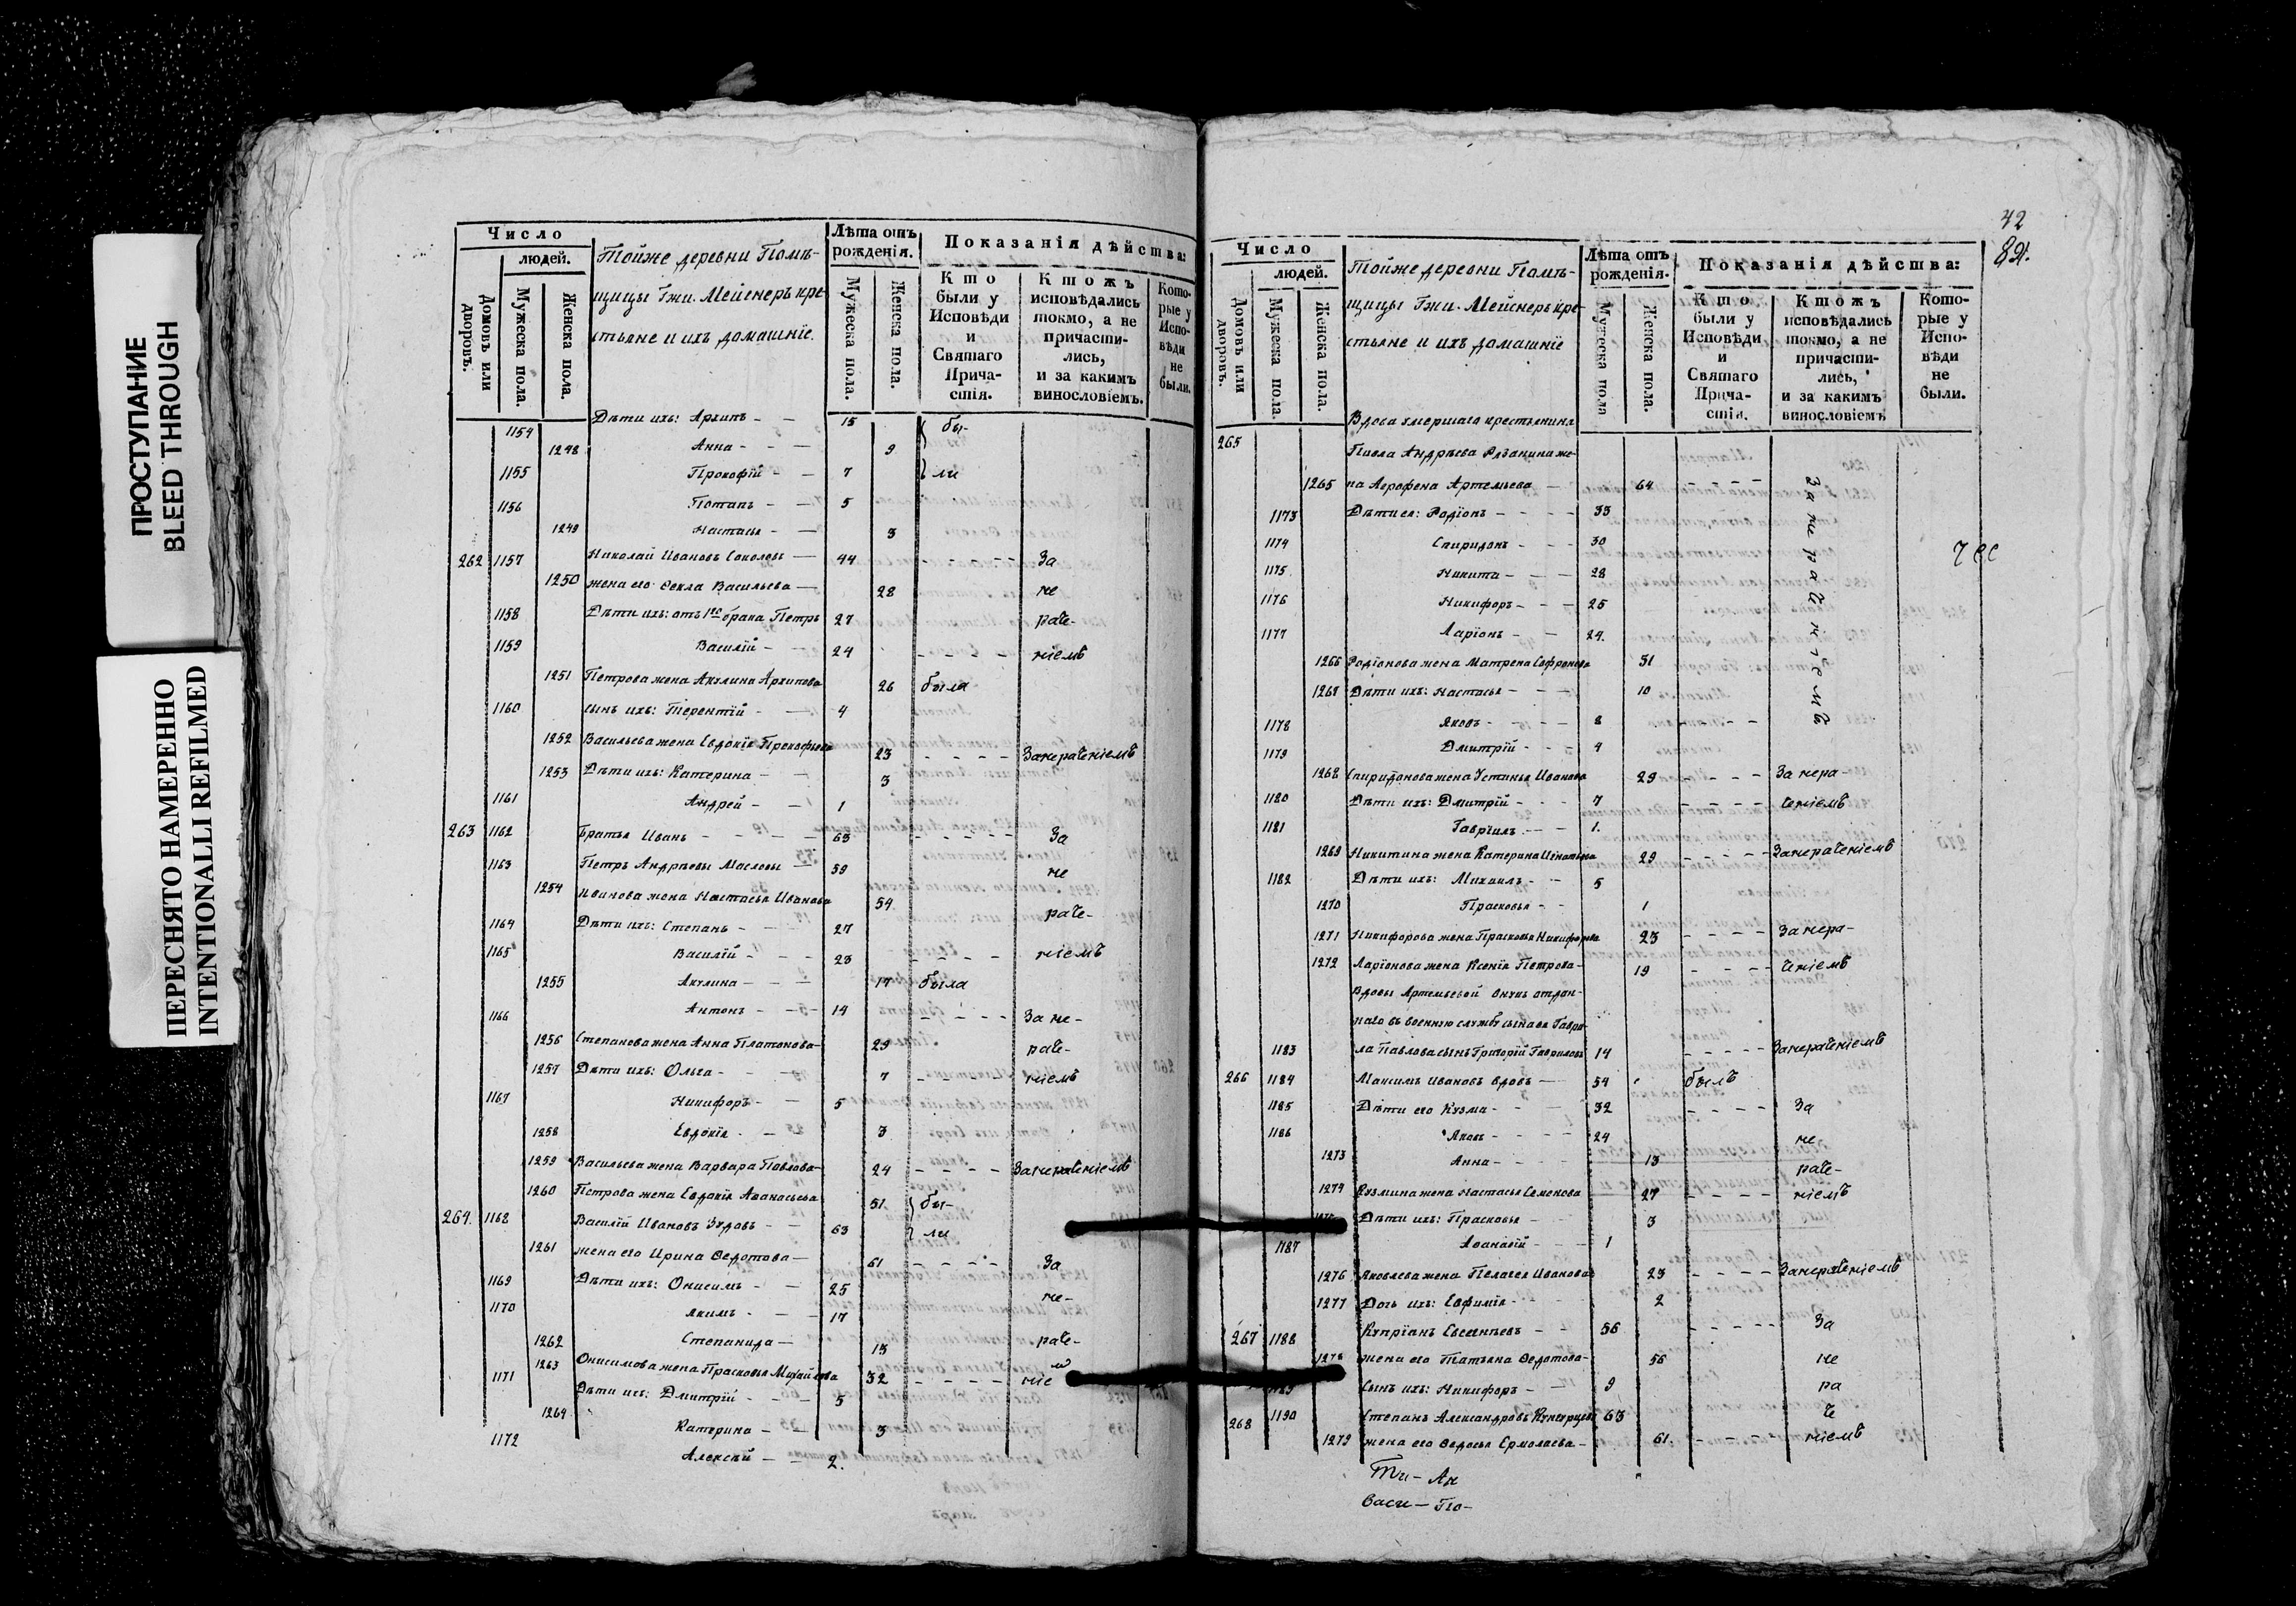 ПРОСТУПАНИЕ
BLEED THROUGH
ПЕРЕСНЯТО НАМЕРЕННО
INTENTIONALLI REFILMED
Число
людей.
Домовъ или дворовъ.
Мужеска пола.
Женска пола.
Тойже деревни Помѣ-
щицы Гжи. Мейснеръ кре-
стьяне и ихъ домашніе.
Лѣта отъ рожденія.
Мужеска пола.
Женска пола.
Показанія дѣйства:
Кто были у Исповѣди и Святаго Прича-стія.
Ктожъ исповѣдались токмо, а не причасти-лись, и за какимъ винословіемъ.
Кото-рые у Испо-вѣди не были.
1154 Дѣти ихъ: Архипъ 15 бы-
1248 Анна 9
1155 Прокофій 7 ли
1156 Потапъ 5
1249 Настасья 3
262 1157 Николай Ивановъ Соколовъ 44 За
1250 жена его Ѳекла Васильева 28 не
1158 Дѣти ихъ: отъ 1го брака Петръ 27 раче-
1159 Василій 24 ніемъ
1251 Петрова жена Акулина Архипова 26 была
1160 сынъ ихъ: Терентій 4
1252 Васильева жена Евдокія Прокофьева 23 Занераченіемъ
1253 Дѣти ихъ: Катерина 3
1161 Андрей 1
263 1162 Братья Иванъ 63 За
1163 Петръ Андреевы Масловы 59 не
1254 Иванова жена Настасья Иванова 54 раче-
1164 Дѣти ихъ: Степанъ 27
1165 Василій 23 ніемъ
1255 Акулина 17 была
1166 Антонъ 14 За не-
1256 Степанова жена Анна Платонова 29 раче-
1257 Дѣти ихъ: Ольга 7 ніемъ
1167 Никифоръ 5
1258 Евдокія 3
1259 Васильева жена Варвара Павлова 24 Занераченіемъ
1260 Петрова жена Евдокія Аѳанасьева 51 бы-
264. 1168 Василій Ивановъ 63 ли
1261 жена его Ирина Ѳедотова 61 За
1169 Дѣти ихъ: Онисимъ 25 не-
1170 Якимъ 17
1262 Степанида 13 раче-
1263 Онисимова жена Прасковья Михайлова 32 ніе
1171 Дѣти ихъ: Дмитрій 5
1264 Катерина 3
1172 Алексѣй 2.
42
84.
Число
людей.
Домовъ или дворовъ.
Мужеска пола.
Женска пола.
Тойже деревни Помѣ-
щицы Гжи. Мейснеръ кре-
стьяне и ихъ домашніе
Лѣта отъ рожденія.
Мужеска пола
Женска пола.
Показанія дѣйства:
Кто были у Исповѣди и Святаго Прича-стія.
Ктожъ исповѣдались токмо, а не причасти-лись, и за какимъ винословіемъ
Кото-рые у Испо-вѣди не были.
Вдова умершаго крестьянина
265 Павла Андреева Рязанина же-
1265 на Агрофена Артемьева 64 Занераченіемъ
1173 Дѣти ея: Родіонъ 33
1174 Спиридонъ 30
1175 Никита 28
1176 Никифоръ 25
1177 Ларіонъ 24.
1266 Родіонова жена Матрена Софронова 31
1267 Дѣти ихъ: Настасья 10
1178 Яковъ 8
1179 Дмитрій 4
1268 Спиридонова жена Устинья Иванова 29 За нера-
1180 Дѣти ихъ: Дмитрій 7 ченіемъ
1181 Гавріилъ 1.
1269 Никитина жена Катерина Игнатьева 29 Занераченіемъ
1182 Дѣти ихъ: Михаилъ 5
1270 Прасковья 1
1271 Никифорова жена Прасковья Никифорова 23 За нера-
1272 Ларіонова жена Ксенія Петрова 19 ченіемъ
Вдовы Артемьевой внукъ отдан-
наго въ военную службу сына ея Гаври-
1183 ла Павлова сынъ Григорій Гавриловъ 14 Занераченіемъ
266 1184 Максимъ Ивановъ вдовъ 54 былъ
1185 Дѣти его Кузма 32 За
1186 Яковъ 24 не
1273 Анна 13 раче-
1274 Кузмина жена Настасья Семенова 27 ніемъ
Дѣти ихъ: Прасковья 3
1187 Аѳанасій 1
1276 Яковлева жена Пелагея Иванова 23 Занераченіемъ
1277 Дочь ихъ: Евфимія 2
267 1188 Купріанъ Евсентьевъ 56 За
1278 жена его Татьяна Ѳедотова 56 не
Сынъ ихъ: Никифоръ 9 ра
268 1190 Степанъ Александровъ 63 че
1279 жена его Ѳедосья Ермолаева 61 ніемъ
Ти- Ак
Васи- По-